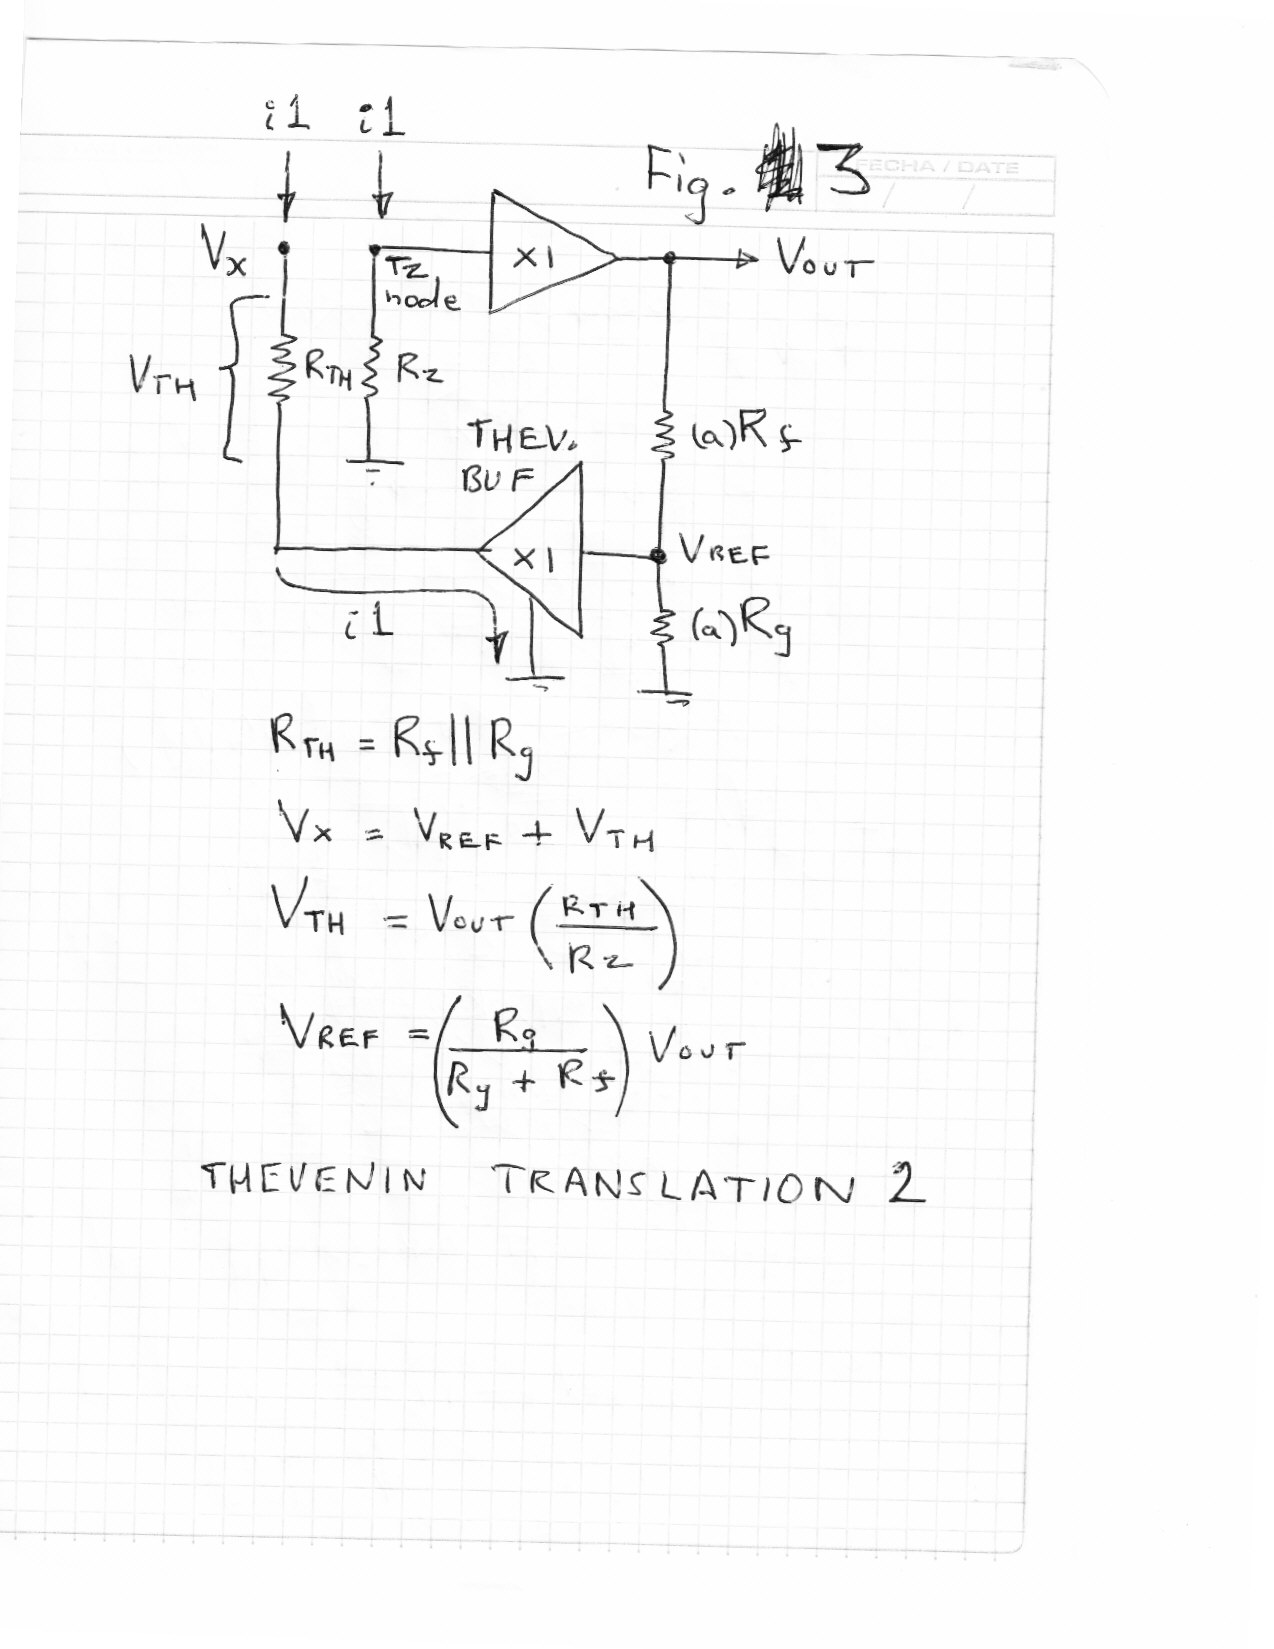 i1 i1
Fig. 3
FECHA / DATE
/ /
Vx
TZ
node
X1
VOUT
VTH
RTH
Rz
(a)Rf
THEV.
BUF
X1
VREF
i1
(a)Rg
RTH = Rf || Rg
Vx = VREF + VTH
VTH = VOUT (RTH / Rz)
VREF = (Rg / Rg + Rf) VOUT
THEVENIN TRANSLATION 2